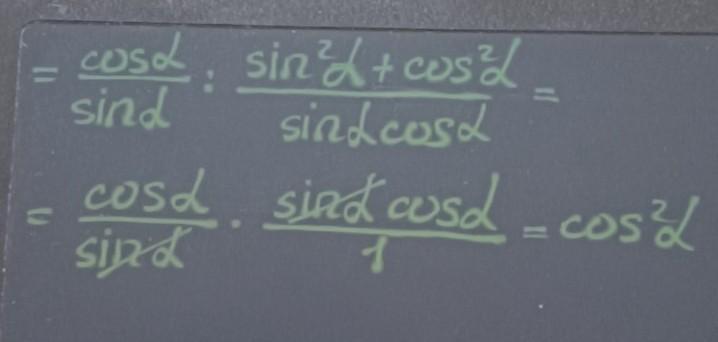 = cosα/sinα : (sin²α + cos²α)/(sinα cosα) =
= cosα/sinα · (sinα cosα)/1 = cos²α